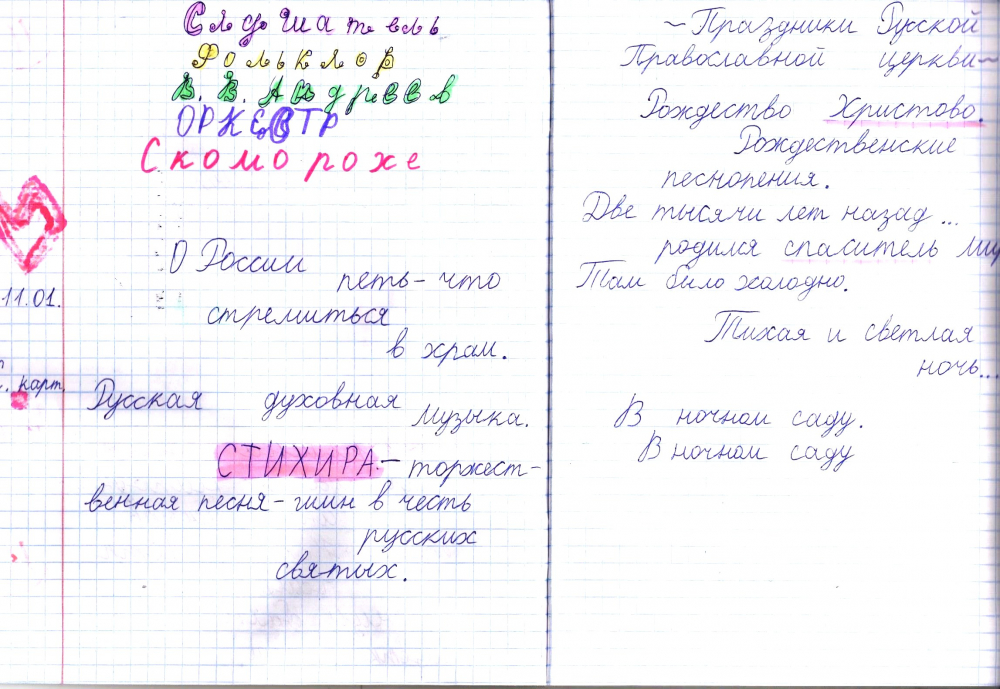 Слушатель
Фольклор
В. В. Андреев
ОРКЕСТР
Скоморохе
О России
петь - что
11.01.
стремиться
в храм.
карт.
Русская духовная музыка.
СТИХИРА - торжест-
венная песня - гимн в честь
русских
святых.
~ Праздники Русской
Православной церкви ~
Рождество Христово.
Рождественские
песнопения.
Две тысячи лет назад ...
родился спаситель
Там было холодно.
Тихая и светлая
ночь...
В ночном саду.
В ночном саду